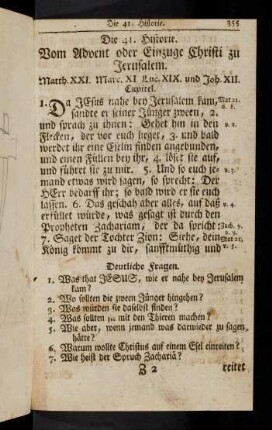 Die 41. Historie. 355
Die 41. Historie.
Vom Advent oder Einzuge Christi zu
Jerusalem.
Matth. XXI. Marc. XI Luc. XIX. und Joh. XII.
Capitel.
1. Da JEsus nahe bey Jerusalem kam, Mat 21.
sandte er seiner Jünger zween, 2.
und sprach zu ihnen: Gehet hin in den v. 2.
Flecken, der vor euch lieget, 3. und bald
werdet ihr eine Eselin finden angebunden,
und einen Füllen bey ihr, 4. löset sie auf,
und führet sie zu mir. 5. Und so euch je- v. 3.
mand etwas wird sagen, so sprecht: Der
HErr bedarf ihr; so bald wird er sie euch
lassen. 6. Das geschah aber alles, auf daß v. 4.
erfüllet würde, was gesagt ist durch den
Propheten Zachariam, der da spricht: Zach. 9.
7. Saget der Tochter Zion: Siehe, dein Mat 21.
König kommt zu dir, sanfftmüthig und v. 5.
Deutliche Fragen.
1. Was that JESUS, wie er nahe bey Jerusalem
kam?
2. Wo sollten die zween Jünger hingehen?
3. Was würden sie daselbst finden?
4. Was sollten sie mit den Thieren machen?
5. Wie aber, wenn jemand was darwieder zu sagen
hätte?
6. Warum wollte Christus auf einem Esel einreiten?
7. Wie heist der Spruch Zachariä?
Z 2 reitet